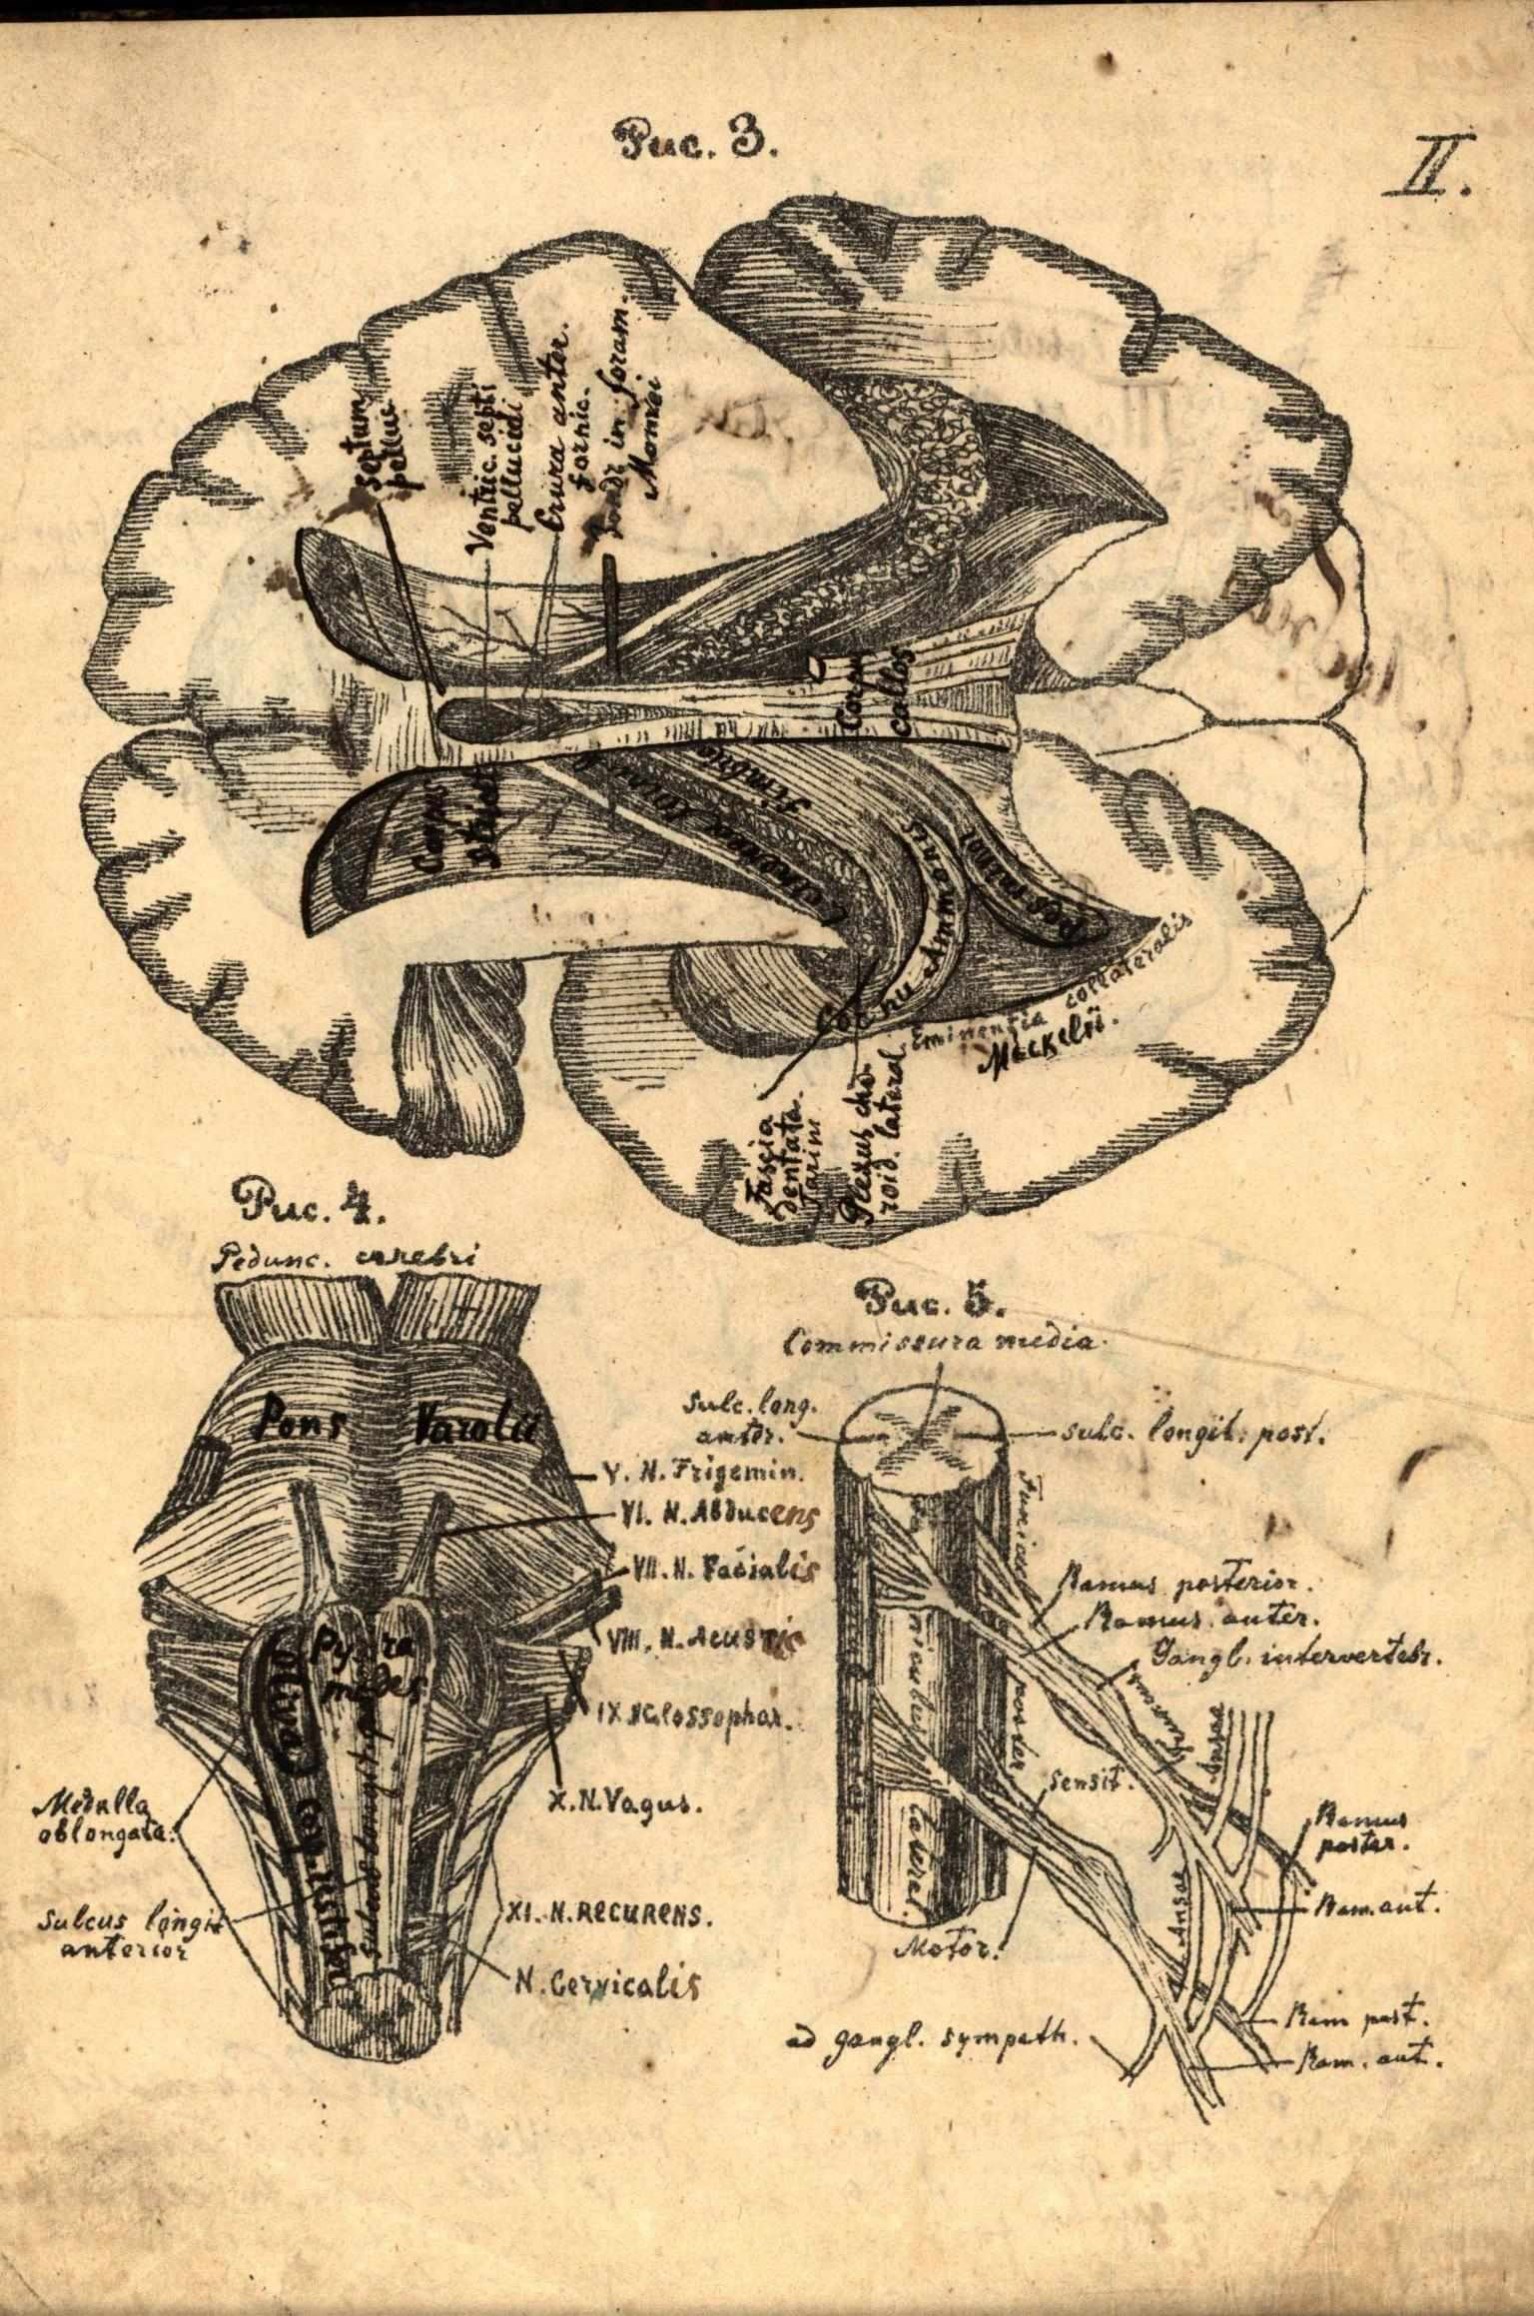 Рис. 3.
II.
Septum
pelluc.
Ventric. septi
pellucidi
Crura anter.
fornic.
Sonde in foram.
Monroi
Corp.
callos
Corpus
striat
Fimbria
Cornu Ammonis
Pes minor
Eminentia collateralis
Meckelii.
Fascia
dentata.
Tarini
Plexus cho-
roid. lateral.
Рис. 4.
Pedunc. cerebri
Pons Varolii
V. N. Trigemin.
VI. N. Abducens
VII. N. Facialis
VIII. N. Acustic
Pyra
mides
oliva
IX N Glossophar.
X. N. Vagus.
Medulla
oblongata.
cop. restifor
Sulcus longit
anterior
XI. N. RECURENS.
N. Cervicalis
Рис. 5.
Commissura media.
Sulc. long.
anter.
sulc. longit. post.
Ramus posterior.
Ramus anter.
Gangl. intervertebr.
poster
lateral.
Ansae
sensit.
Ramus
poster.
Ansae
Ram. ant.
Motor.
Ram post.
ad gangl. sympath.
Ram. ant.